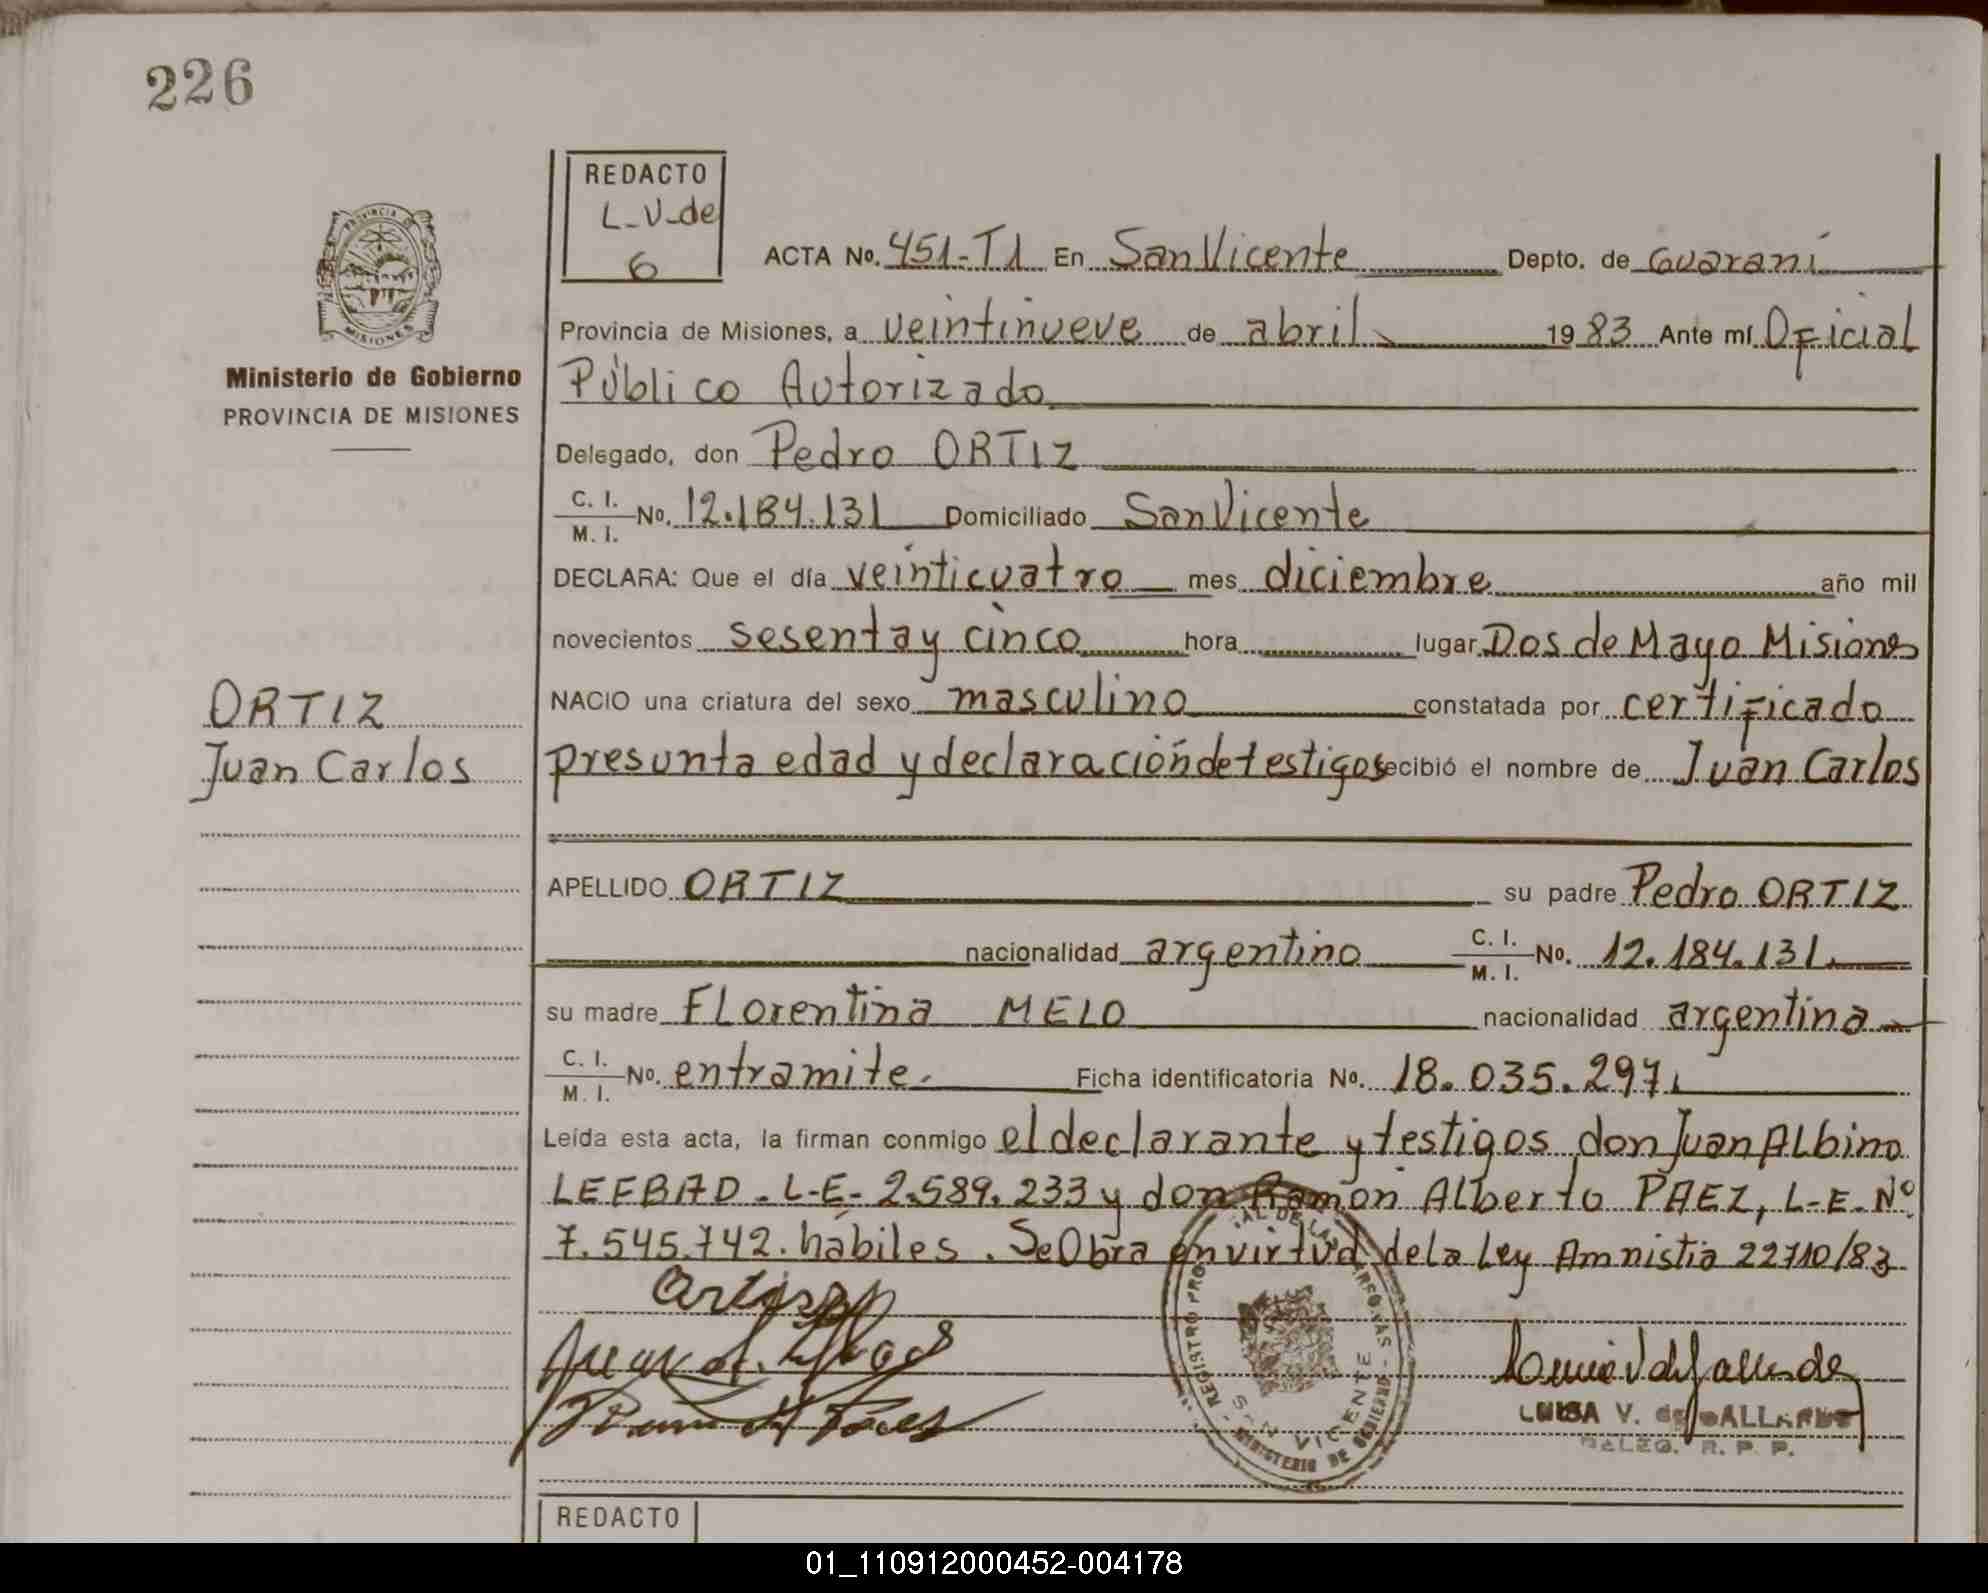 226
REDACTO
L-V-de
G
PROVINCIA DE
MISIONES
Ministerio de Gobierno
PROVINCIA DE MISIONES
ACTA No. 451-T1 En San Vicente Depto. de Guaraní
Provincia de Misiones, a veintinueve de abril 1983 Ante mí Oficial
Público Autorizado
Delegado, don Pedro ORTIZ
C. I. / M. I. No. 12.184.131 Domiciliado San Vicente
DECLARA: Que el día veinticuatro mes diciembre año mil
novecientos sesenta y cinco hora lugar Dos de Mayo Misiones
NACIO una criatura del sexo masculino constatada por certificado
presunta edad y declaración de testigos recibió el nombre de Juan Carlos
ORTIZ
Juan Carlos
APELLIDO ORTIZ su padre Pedro ORTIZ
nacionalidad argentino C. I. / M. I. No. 12.184.131.
su madre Florentina MELO nacionalidad argentina
C. I. / M. I. No. entramite. Ficha identificatoria No. 18.035.297.
Leída esta acta, la firman conmigo el declarante y testigos don Juan Albino
LEFBAD. L-E- 2.589.233 y don Ramón Alberto PAEZ, L-E-Nº
7.545.742. hábiles. Se Obra en virtud de la Ley Amnistia 22710/83
REGISTRO
SAN VICENTE
MINISTERIO DE GOBIERNO
LUISA V. de GALLARDO
DELEG. R. P. P.
REDACTO
01_110912000452-004178